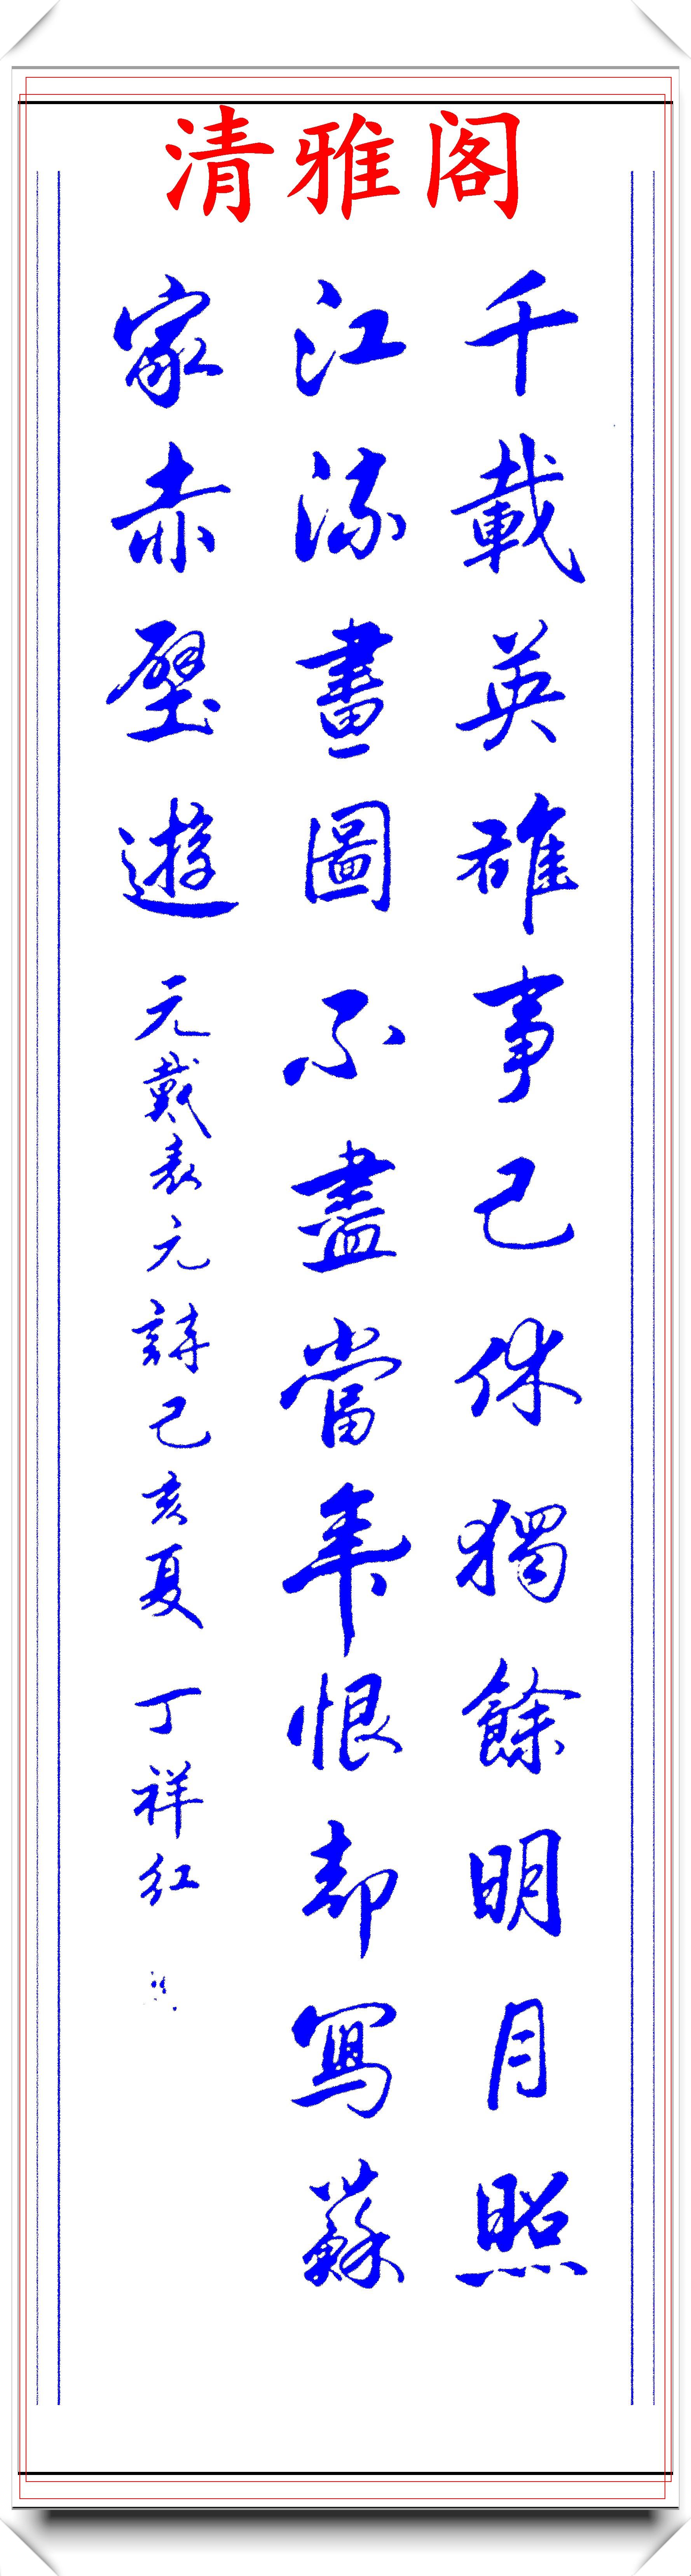 清雅阁
千載英雄事已休獨餘明月照
江流畫圖不盡當年恨却寫蘇
家赤壁遊 元戴表元詩己亥夏 丁祥红